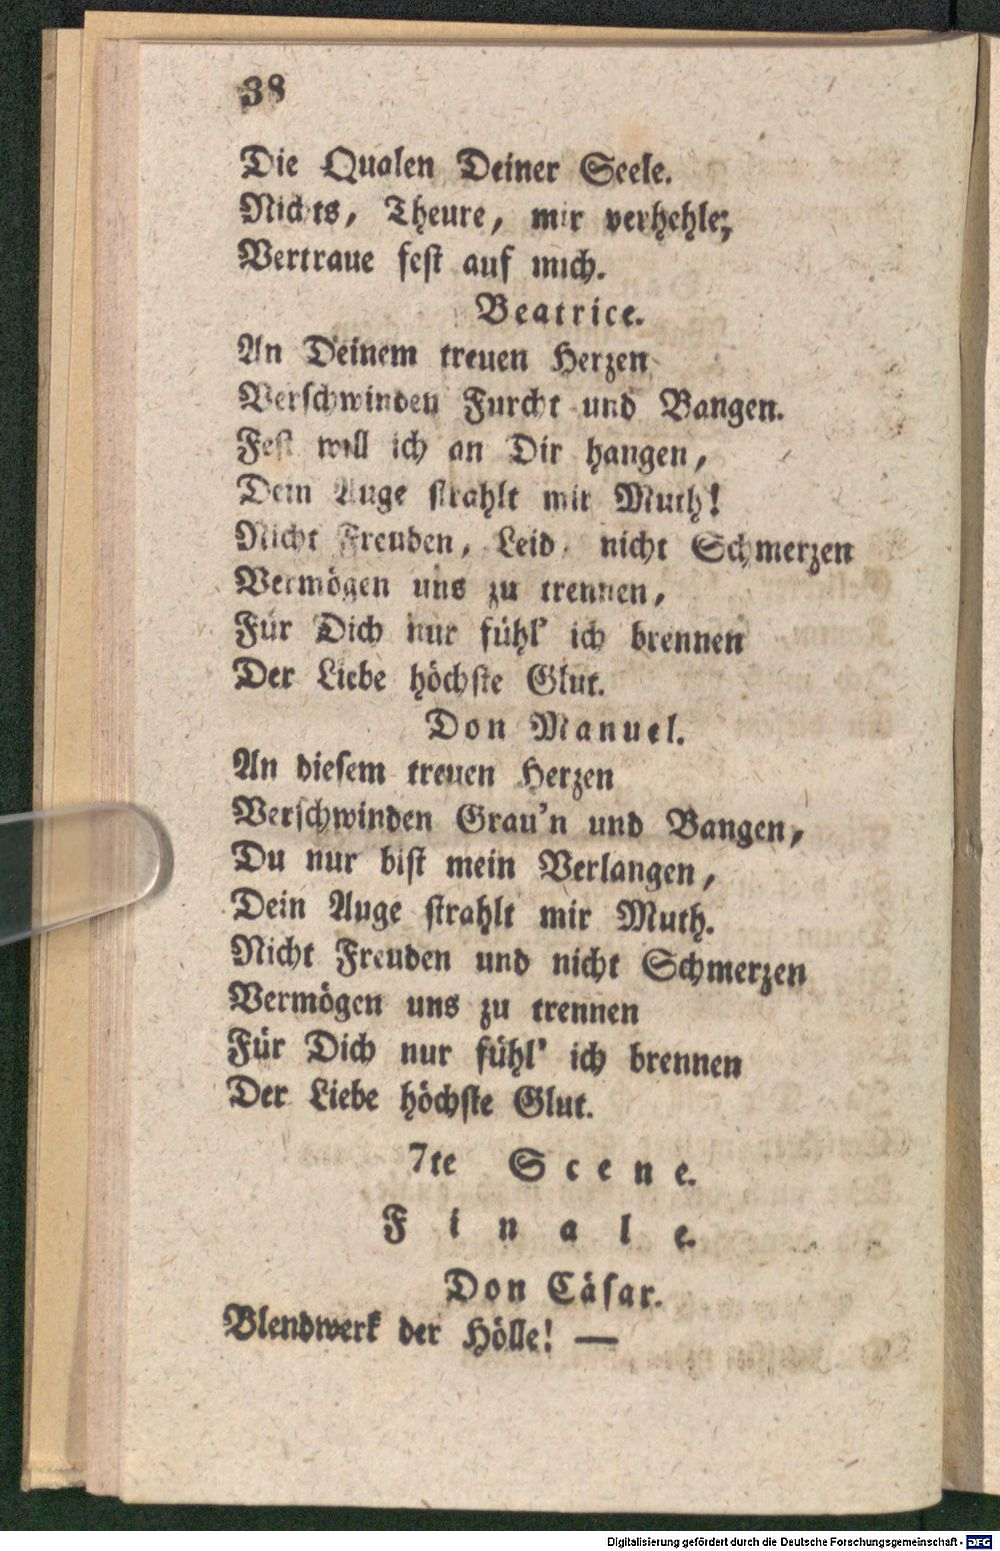 38
Die Qualen Deiner Seele.
Nichts, Theure, mir verhehle;
Vertraue fest auf mich.
Beatrice.
An Deinem treuen Herzen
Verschwinden Furcht und Bangen.
Fest will ich an Dir hangen,
Dein Auge strahlt mir Muth!
Nicht Freuden, Leid, nicht Schmerzen
Vermögen uns zu trennen,
Für Dich nur fühl' ich brennen
Der Liebe höchste Glut.
Don Manuel.
An diesem treuen Herzen
Verschwinden Grau'n und Bangen,
Du nur bist mein Verlangen,
Dein Auge strahlt mir Muth.
Nicht Freuden und nicht Schmerzen
Vermögen uns zu trennen
Für Dich nur fühl' ich brennen
Der Liebe höchste Glut.
7te Scene.
Finale.
Don Cäsar.
Blendwerk der Hölle! —
Digitalisierung gefördert durch die Deutsche Forschungsgemeinschaft - DFG